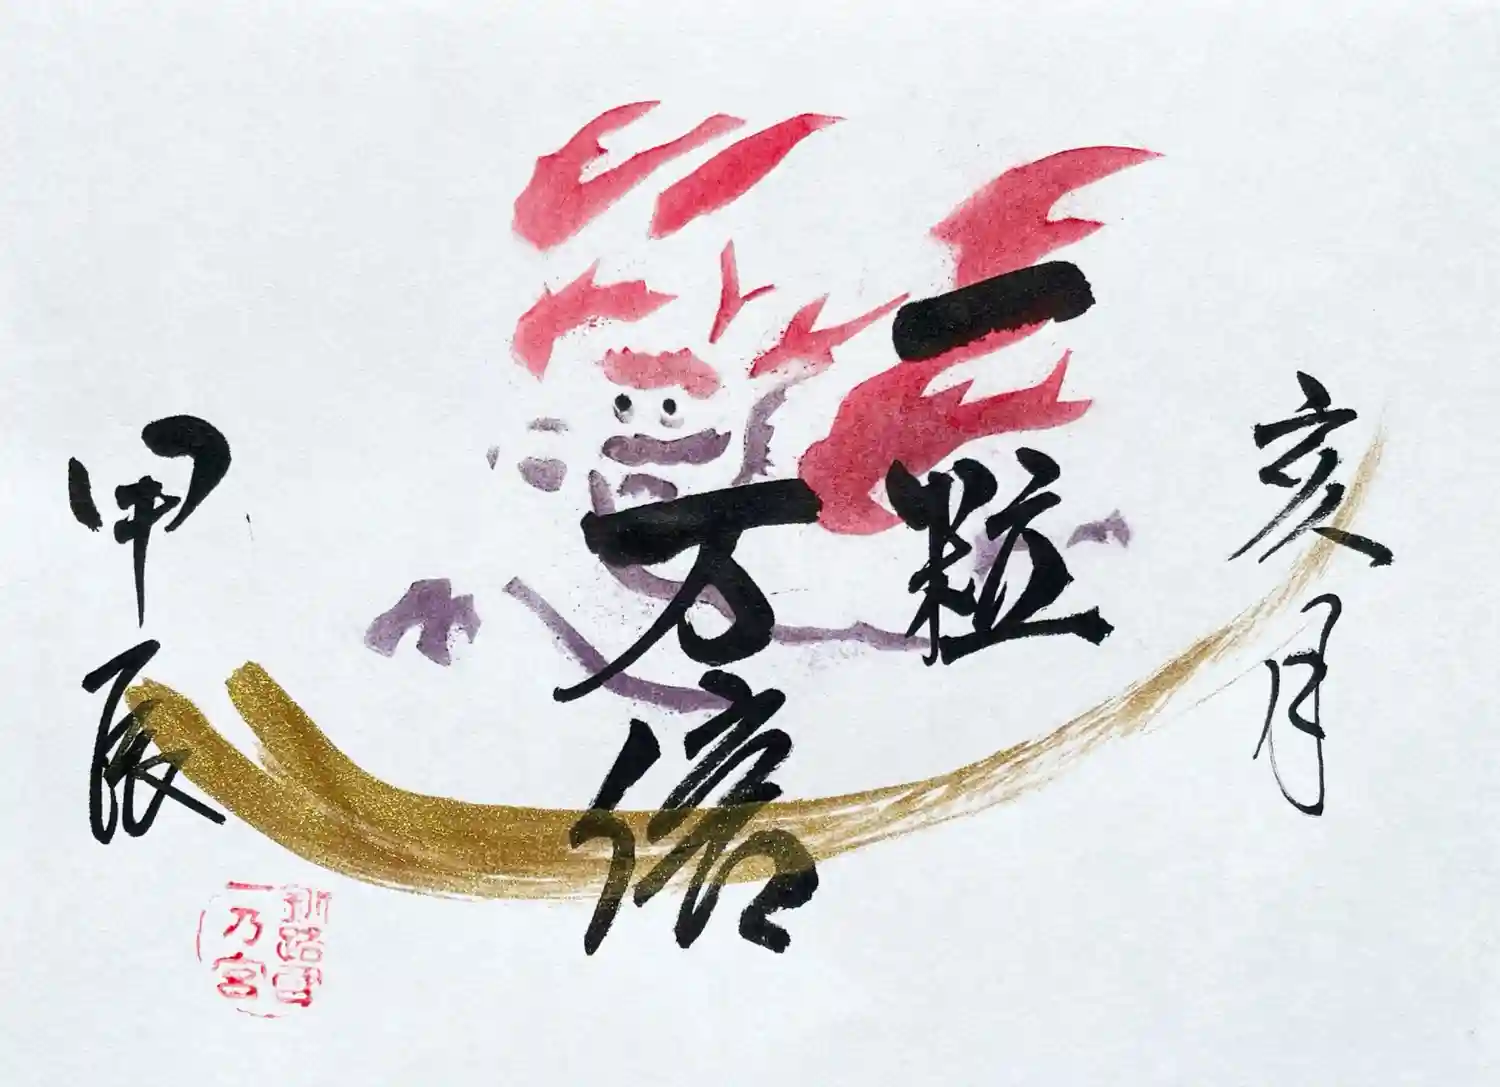 亥月
一粒
万倍
甲辰
釧路
一乃宮